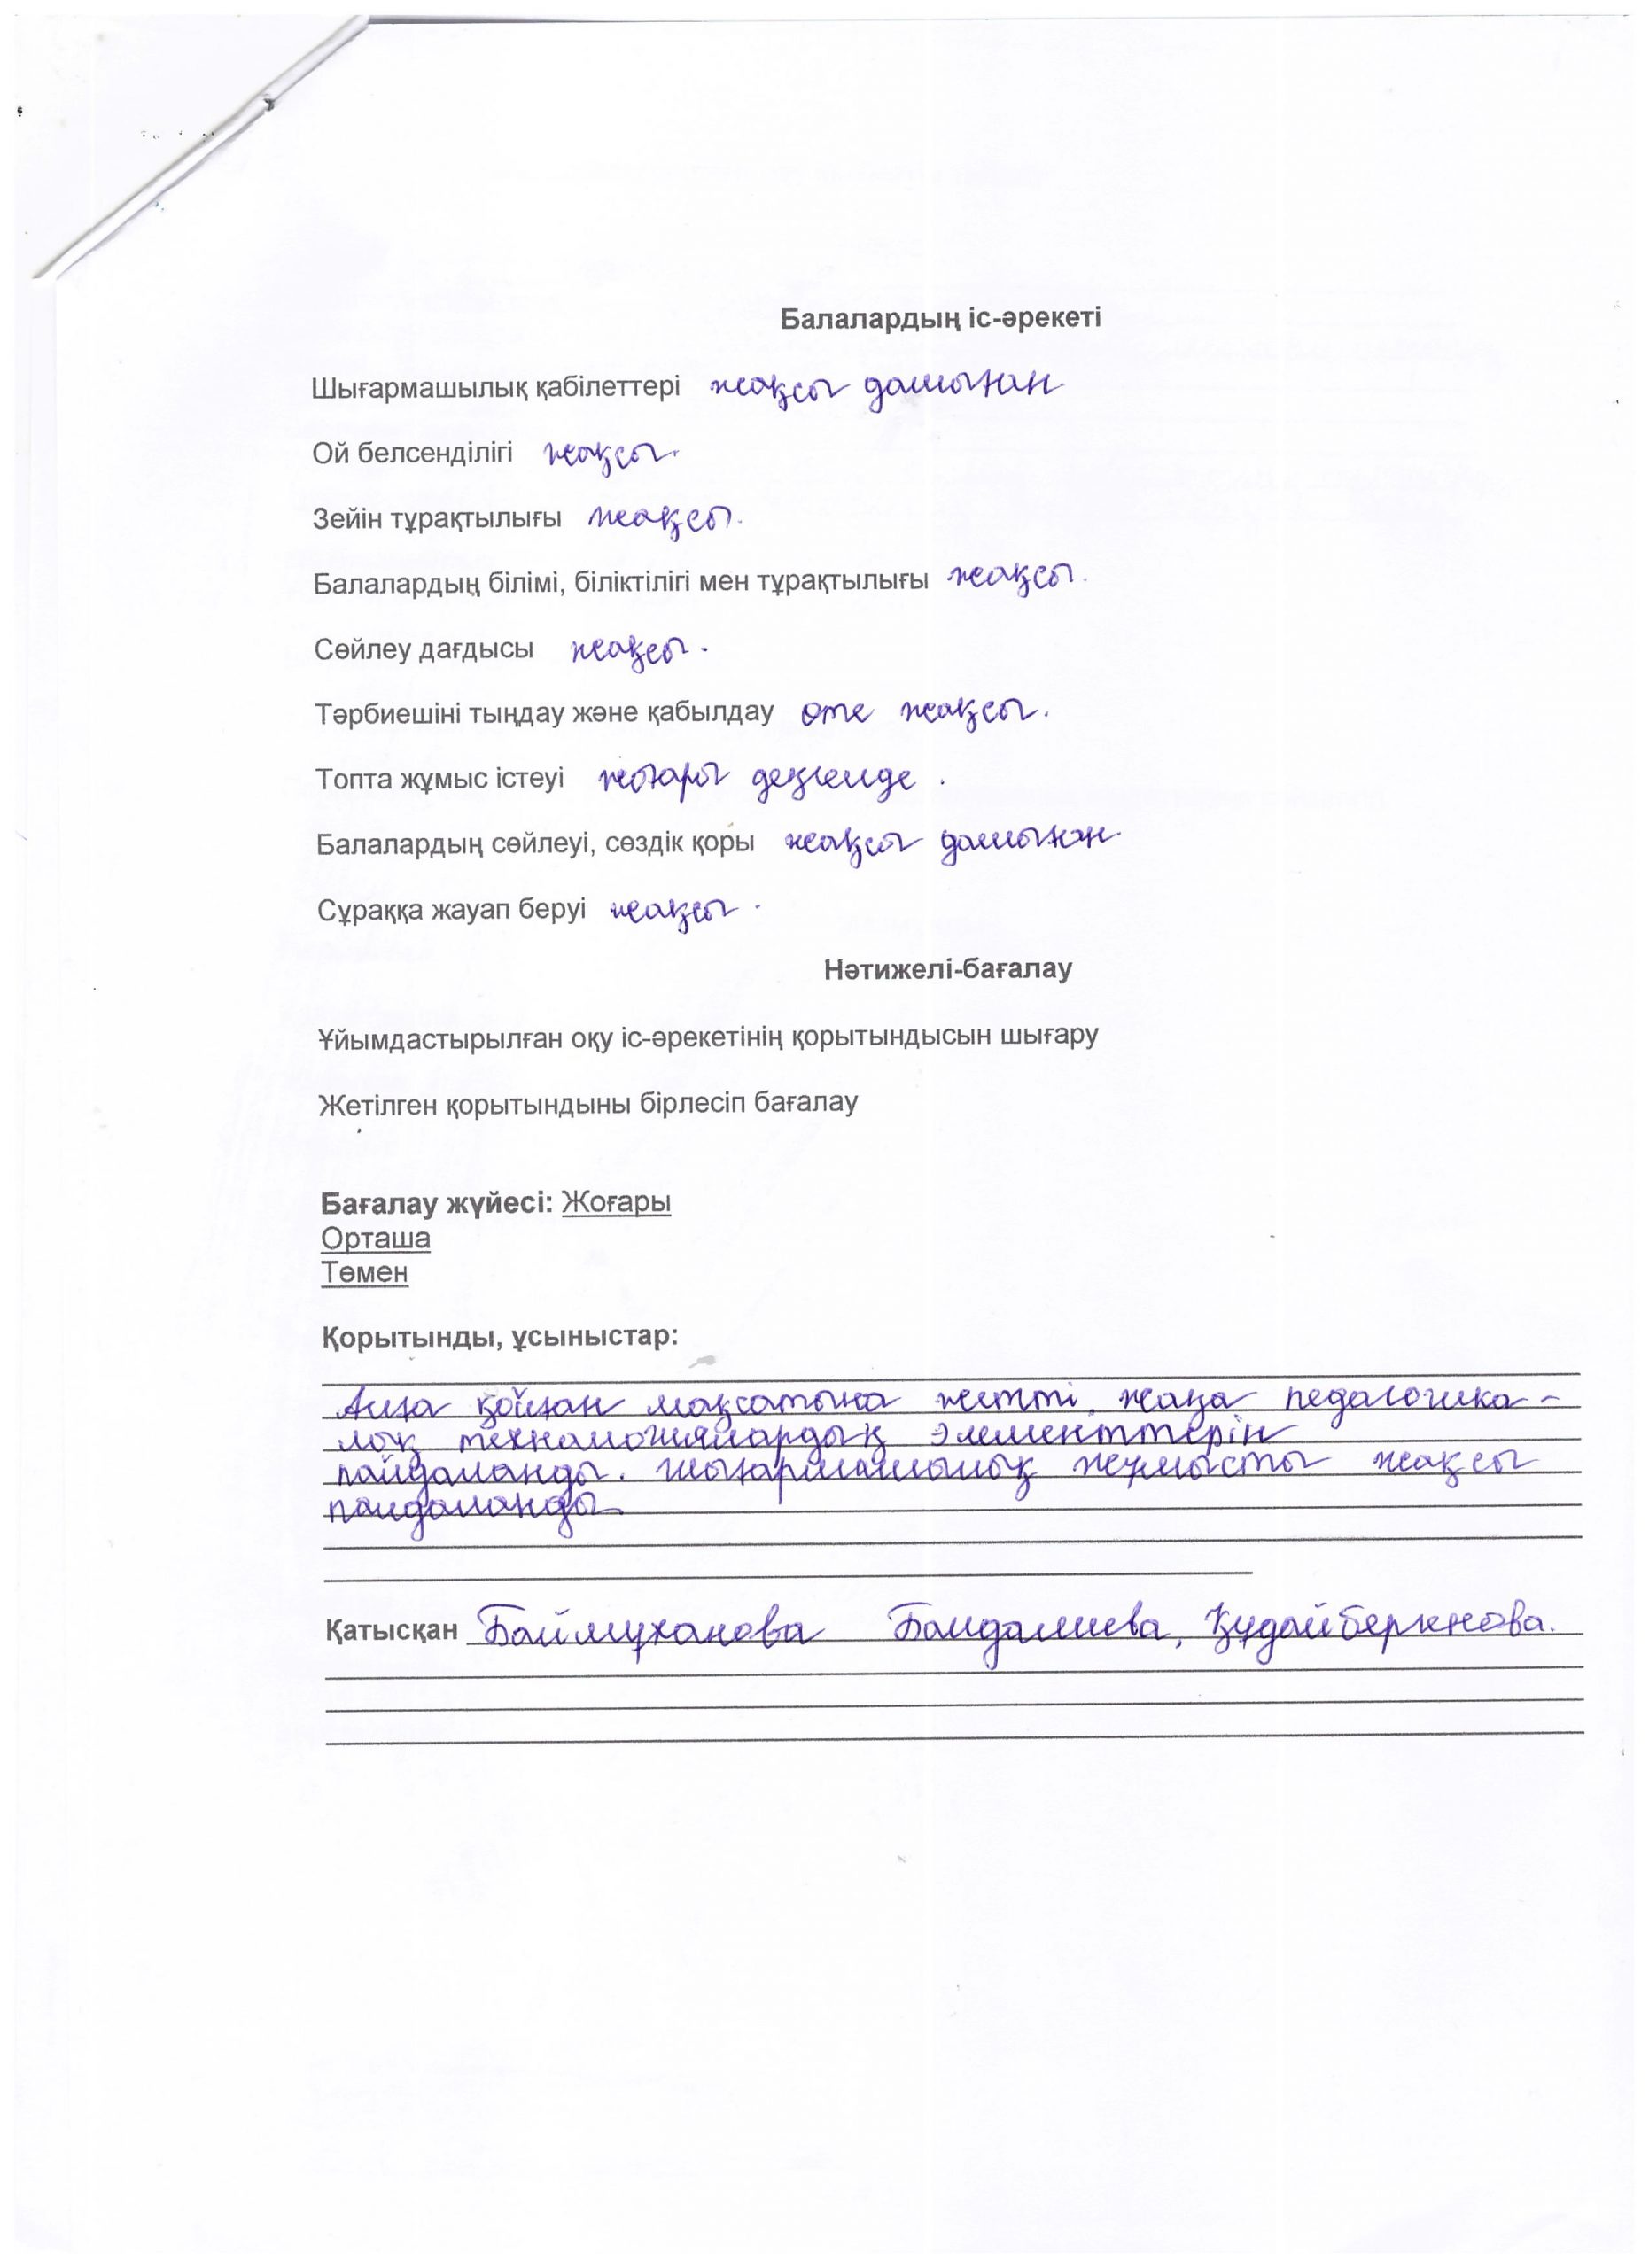 Балалардың іс-әрекеті
Шығармашылық қабілеттері жақсы дамыған
Ой белсенділігі жақсы.
Зейін тұрақтылығы жақсы.
Балалардың білімі, біліктілігі мен тұрақтылығы жақсы.
Сөйлеу дағдысы жақсы.
Тәрбиешіні тыңдау және қабылдау өте жақсы.
Топта жұмыс істеуі жоғары деңгейде.
Балалардың сөйлеуі, сөздік қоры жақсы дамыған.
Сұраққа жауап беруі жақсы.
Нәтижелі-бағалау
Ұйымдастырылған оқу іс-әрекетінің қорытындысын шығару
Жетілген қорытындыны бірлесіп бағалау
Бағалау жүйесі: Жоғары
Орташа
Төмен
Қорытынды, ұсыныстар:
Алға қойған мақсатына жетті, жаңа педагогика-
лық технологиялардың элементтерін
пайдаланды. Шығармашылық жұмысты жақсы
пайдаланды.
Қатысқан Баймуханова Байдалиева, Құдайбергенова.